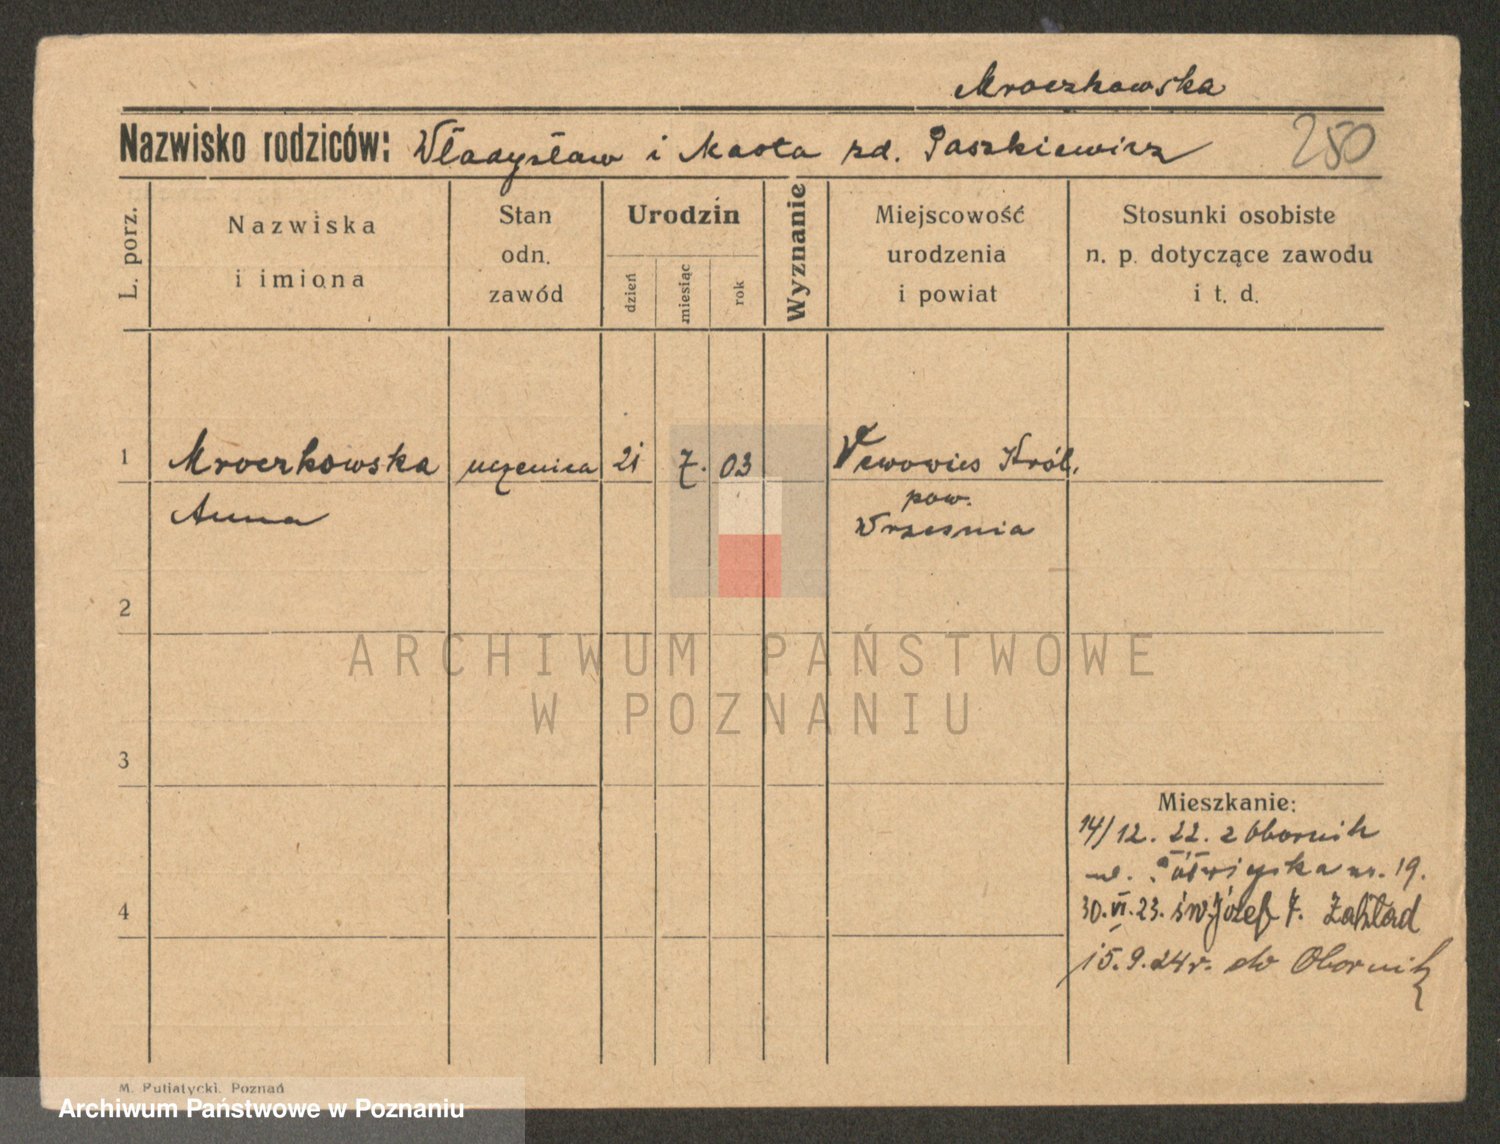 Mroczkowska
Nazwisko rodziców: Władysław i Marta zd. Paszkiewicz 250
L. porz.
Nazwiska
i imiona
Stan
odn.
zawód
Urodzin
dzień
miesiąc
rok
Wyznanie
Miejscowość
urodzenia
i powiat
Stosunki osobiste
n. p. dotyczące zawodu
i t. d.
1 Mroczkowska uczenica 21 7. 03 Król.
Anna pow.
Września
2
ARCHIWUM PAŃSTWOWE
W POZNANIU
3
Mieszkanie:
14/12. 22. z Obornik
ul. nr. 19.
30.VI.23. św. Józef 7. Zakład
4
15.9.24r. do Obornik
M. Putiatycki, Poznań
Archiwum Państwowe w Poznaniu